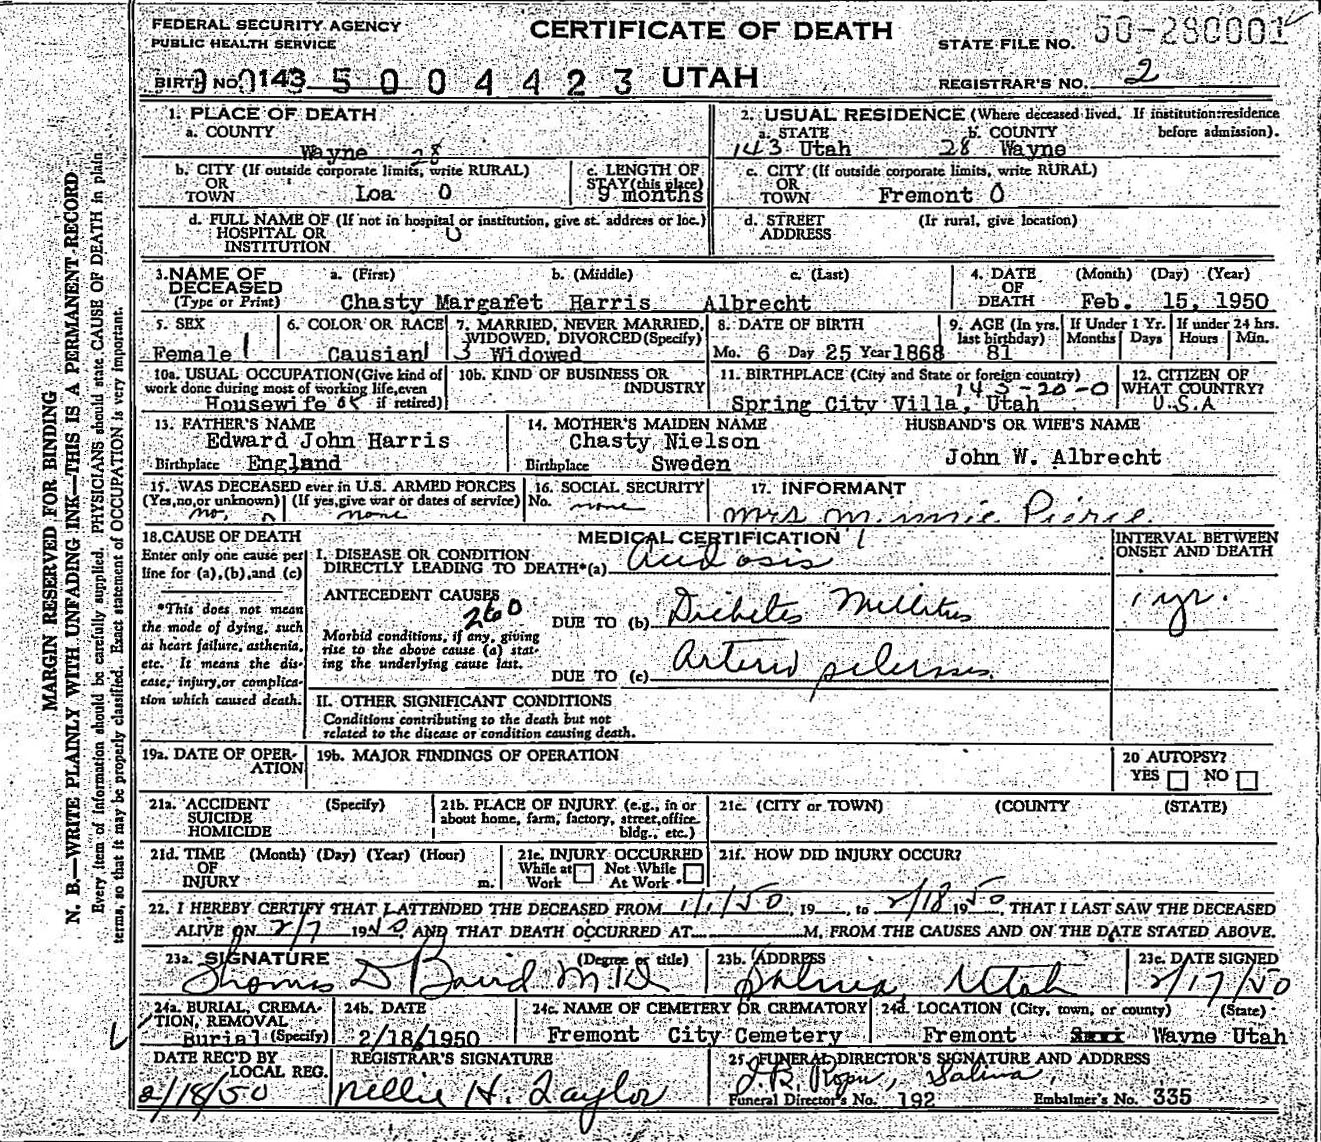 FEDERAL SECURITY AGENCY
PUBLIC HEALTH SERVICE
CERTIFICATE OF DEATH
STATE FILE NO. 50-280001
BIRTH NO. 0143 5 0 0 4 4 2 3 UTAH
REGISTRAR'S NO. 2
1. PLACE OF DEATH
a. COUNTY
Wayne 28
2. USUAL RESIDENCE (Where deceased lived. If institution: residence before admission).
a. STATE b. COUNTY
143 Utah 28 Wayne
b. CITY (If outside corporate limits, write RURAL)
OR
TOWN Loa 0
c. LENGTH OF
STAY (this place)
9 months
c. CITY (If outside corporate limits, write RURAL)
OR
TOWN Fremont 0
d. FULL NAME OF (If not in hospital or institution, give st. address or loc.)
HOSPITAL OR 0
INSTITUTION
d. STREET (If rural, give location)
ADDRESS
3. NAME OF DECEASED
(Type or Print)
a. (First) b. (Middle) c. (Last)
Chasty Margaret Harris Albrecht
4. DATE OF DEATH
(Month) (Day) (Year)
Feb. 15, 1950
5. SEX
Female 1
6. COLOR OR RACE
Causian 1
7. MARRIED, NEVER MARRIED, WIDOWED, DIVORCED (Specify)
3 Widowed
8. DATE OF BIRTH
Mo. 6 Day 25 Year 1868
9. AGE (In yrs. last birthday)
81
If Under 1 Yr.
Months Days
If under 24 hrs.
Hours Min.
10a. USUAL OCCUPATION (Give kind of work done during most of working life, even if retired)
Housewife
10b. KIND OF BUSINESS OR INDUSTRY
11. BIRTHPLACE (City and State or foreign country)
143-20-0
Spring City Villa, Utah
12. CITIZEN OF WHAT COUNTRY?
U.S.A
13. FATHER'S NAME
Edward John Harris
Birthplace England
14. MOTHER'S MAIDEN NAME
Chasty Nielson
Birthplace Sweden
HUSBAND'S OR WIFE'S NAME
John W. Albrecht
15. WAS DECEASED ever in U.S. ARMED FORCES
(Yes, no, or unknown) (If yes, give war or dates of service)
no, none
16. SOCIAL SECURITY
No. none
17. INFORMANT
Mrs Minnie Pierce
18. CAUSE OF DEATH
Enter only one cause per line for (a), (b), and (c)
*This does not mean the mode of dying, such as heart failure, asthenia, etc. It means the disease, injury, or complication which caused death.
MEDICAL CERTIFICATION
I. DISEASE OR CONDITION
DIRECTLY LEADING TO DEATH*(a) Acidosis
ANTECEDENT CAUSES
260
DUE TO (b) Diabetes Millitus
Morbid conditions, if any, giving rise to the above cause (a) stating the underlying cause last.
DUE TO (c) Arterio sclerosis
INTERVAL BETWEEN ONSET AND DEATH
1 yr.
II. OTHER SIGNIFICANT CONDITIONS
Conditions contributing to the death but not related to the disease or condition causing death.
19a. DATE OF OPERATION
19b. MAJOR FINDINGS OF OPERATION
20 AUTOPSY?
YES NO
21a. ACCIDENT (Specify)
SUICIDE
HOMICIDE
21b. PLACE OF INJURY (e.g., in or about home, farm, factory, street, office bldg., etc.)
21c. (CITY or TOWN) (COUNTY) (STATE)
21d. TIME (Month) (Day) (Year) (Hour)
OF
INJURY m.
21e. INJURY OCCURRED
While at Work Not While At Work
21f. HOW DID INJURY OCCUR?
22. I HEREBY CERTIFY THAT I ATTENDED THE DECEASED FROM 1/1/50, 19__, to 2/18 1950, THAT I LAST SAW THE DECEASED
ALIVE ON 2/7 1950, AND THAT DEATH OCCURRED AT M, FROM THE CAUSES AND ON THE DATE STATED ABOVE.
23a. SIGNATURE (Degree or title)
Thomas D Baird M.D
23b. ADDRESS
Salina Utah
23c. DATE SIGNED
2/17/50
24a. BURIAL, CREMATION, REMOVAL (Specify)
Burial
24b. DATE
2/18/1950
24c. NAME OF CEMETERY OR CREMATORY
Fremont City Cemetery
24d. LOCATION (City, town, or county) (State)
Fremont Wayne Utah
DATE REC'D BY LOCAL REG.
2/18/50
REGISTRAR'S SIGNATURE
Nellie H. Taylor
25. FUNERAL DIRECTOR'S SIGNATURE AND ADDRESS
Salina,
Funeral Director's No. 192 Embalmer's No. 335
MARGIN RESERVED FOR BINDING
N. B.—WRITE PLAINLY WITH UNFADING INK—THIS IS A PERMANENT RECORD
Every item of information should be carefully supplied. PHYSICIANS should state CAUSE OF DEATH in plain
terms, so that it may be properly classified. Exact statement of OCCUPATION is very important.